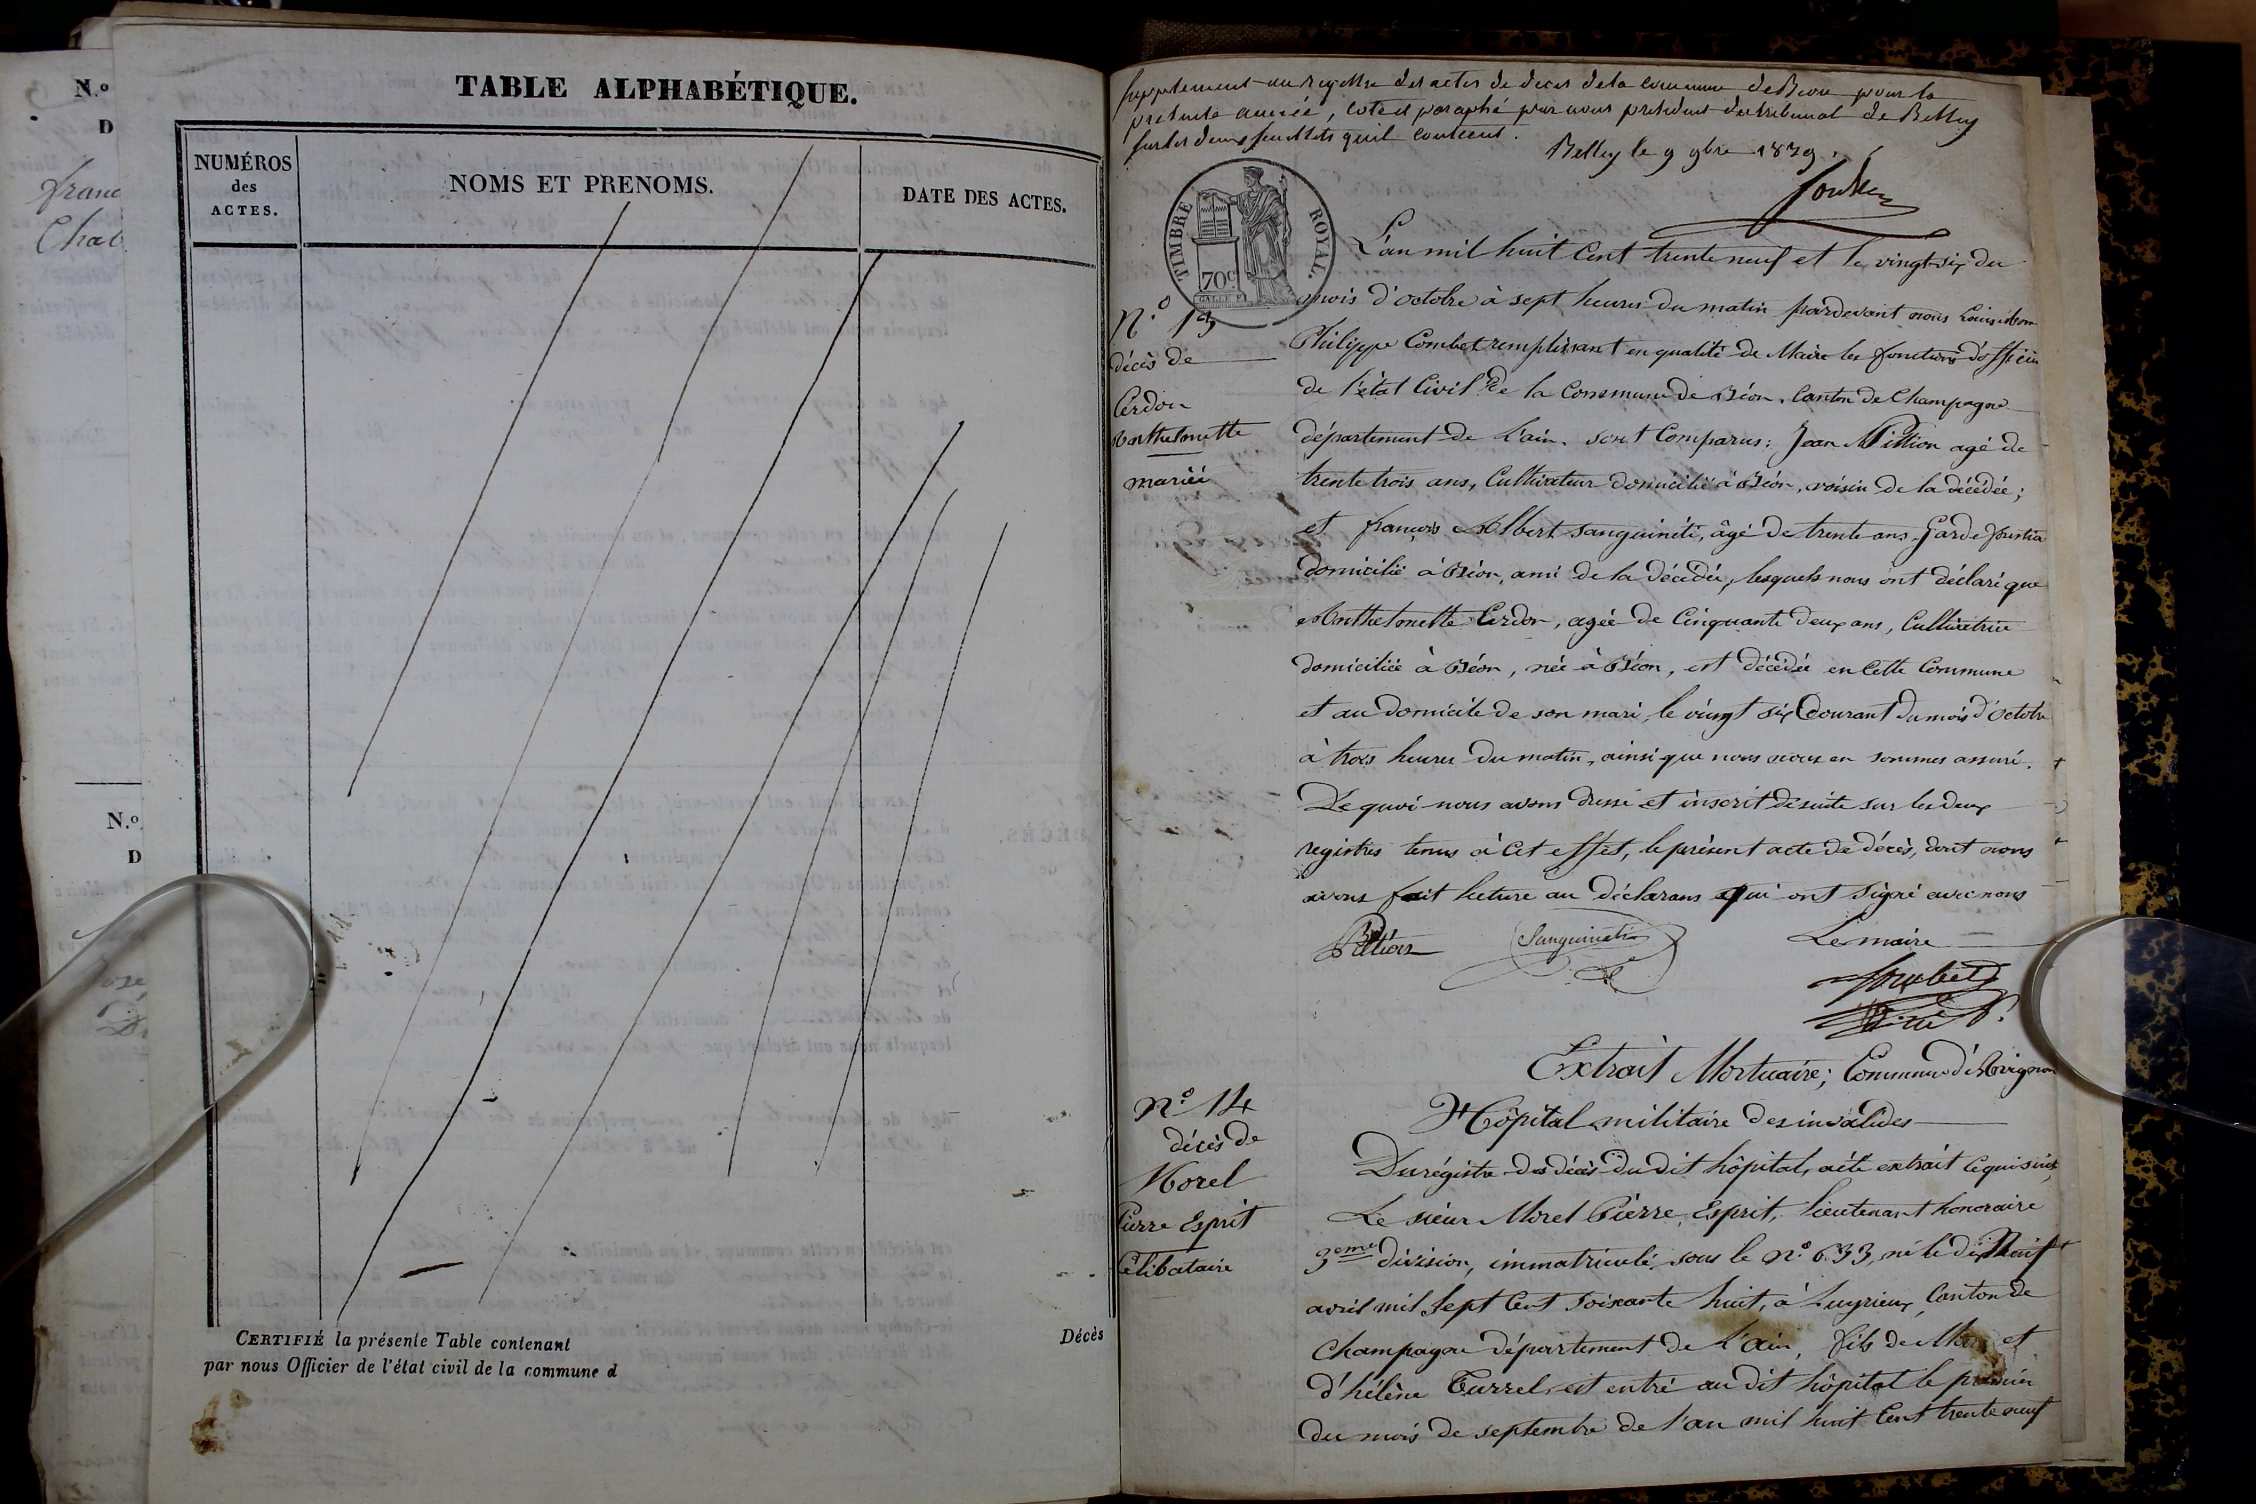 N.o
D
franc
Chat
N.o
D
TABLE ALPHABÉTIQUE.
NUMÉROS
des
ACTES.
NOMS ET PRENOMS.
DATE DES ACTES.
CERTIFIÉ la présente Table contenant
par nous Officier de l'état civil de la commune d
Décès
Supplement au registre des actes de deces de la commune de Béon pour la
presente année, coté et paraphé par nous president du tribunal de Belley
sur les deux feuillets qu'il contient.
Belley le 9 9bre 1839.
TIMBRE ROYAL.
70c
L'an mil huit Cent trente neuf et le vingt-six du
mois d'octobre à sept heures du matin pardevant nous
Philippe Combet remplissant en qualité de Maire les fonctions d'officier
de l'état Civil de la Commune de Béon, Canton de Champagne
département de L'ain. sont Comparus: Jean Pittion agé de
trente trois ans, Cultivateur domicilié à Béon, voisin de la décédée;
et françois Albert Sanguinéti, âgé de trente ans, Garde forestier
domicilié à Béon, ami de la décédée, lesquels nous ont déclaré que
Anthelmette Cerdon, agée de Cinquante deux ans, Cultivatrice
domiciliée à Béon, née à Béon, est décédée en Cette Commune
et au Domicile de son mari, le vingt six Courant du mois d'octobre
à trois heures du matin, ainsi que nous nous en sommes assuré.
De quoi nous avons dressé et inscrit de suite sur les deux
registres tenus à Cet effet, le présent acte de décès, dont nous
avons fait lecture au déclarans qui ont signé avec nous
Pittion
Sanguinetti
Le maire
Combet
N.o 13
décès de
Cerdon
Anthelmette
mariée
N.o 14
décès de
Morel
Pierre Esprit
Célibataire
Extrait Mortuaire; Commune d'Avignon
Hôpital militaire des invalides
Du régistre des décès du dit hôpital, a été extrait ce qui suit,
Le sieur Morel Pierre, Esprit, lieutenant honoraire
3eme division, immatriculé sous le N.o 633, né le dix Neuf
avril mil sept Cent soixante huit, à Luyrieux, Canton de
Champagne département de L'ain, fils de et
d'hélène Turrel, est entré au dit hôpital le premier
du mois de septembre de l'an mil huit Cent trente neuf